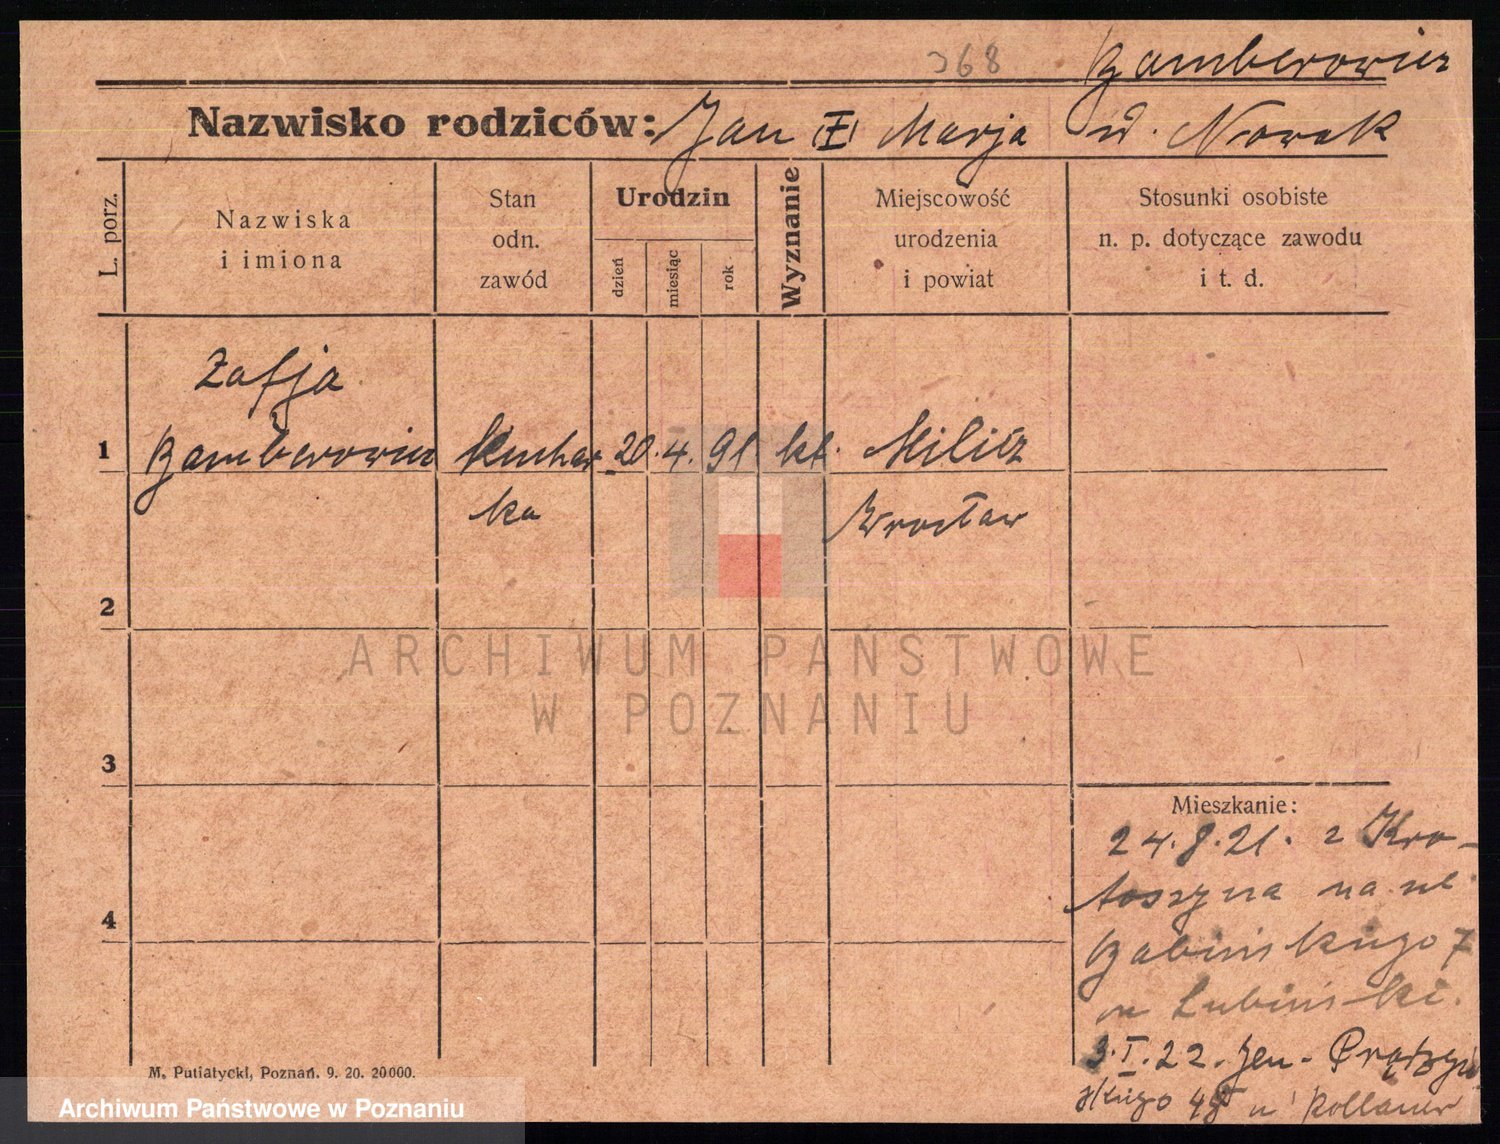 368 Bamberowicz
Nazwisko rodziców: Jan (I) Marja ur. Nowak
L. porz.
Nazwiska
i imiona
Stan
odn.
zawód
Urodzin
dzień
miesiąc
rok
Wyznanie
Miejscowość
urodzenia
i powiat
Stosunki osobiste
n. p. dotyczące zawodu
i t. d.
Zofja
1 Bamberowicz Kuchar- 20. 4. 91 kt. Milicz
ka Wrocław
2
ARCHIWUM PAŃSTWOWE
W POZNANIU
3
Mieszkanie:
24.8.21. z Kro-
toszyna na ul
4
Babińskiego 7
Lubiński.
3.I.22. Jen-
48 u
M. Putiatycki, Poznań. 9. 20. 20000.
Archiwum Państwowe w Poznaniu